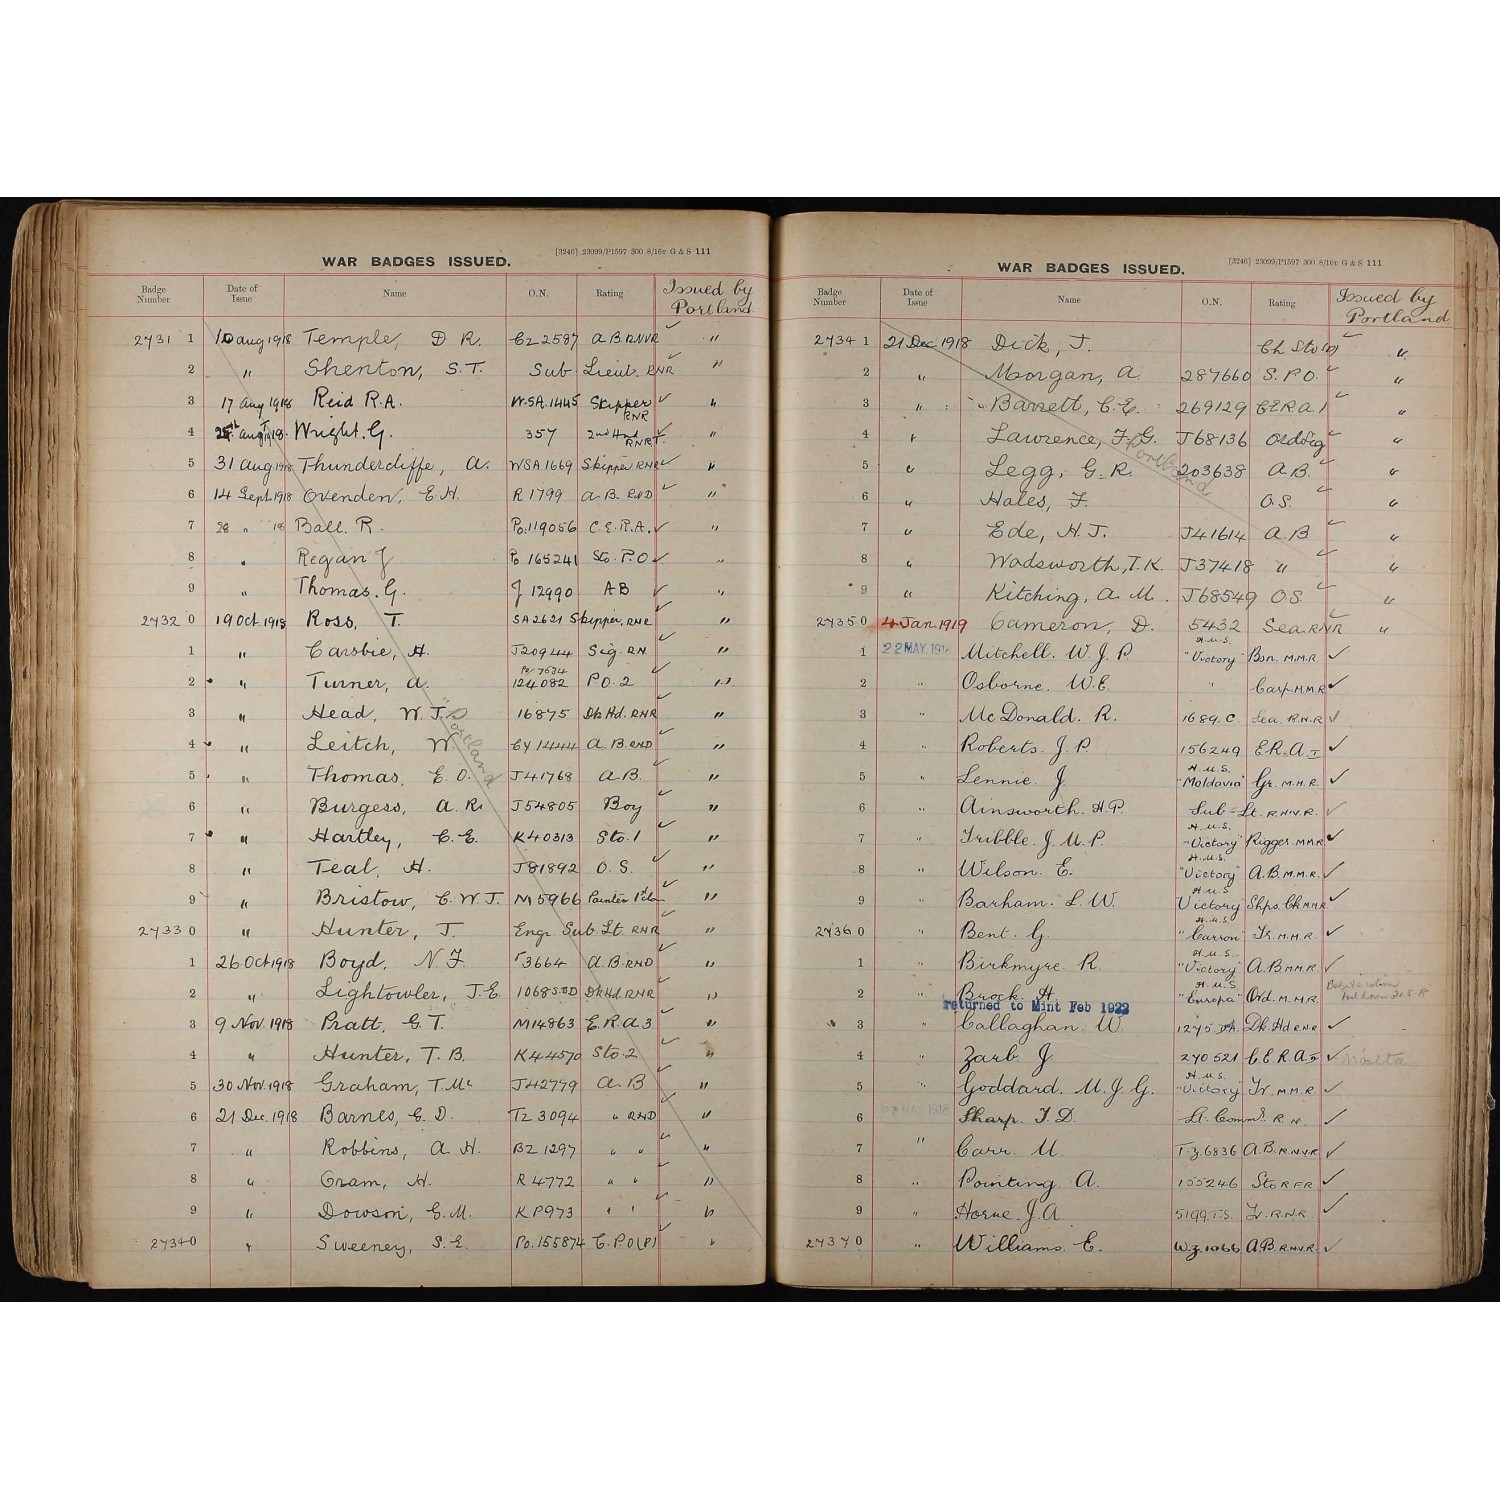 WAR BADGES ISSUED. [3246] 23099/P1597 300 8/16T G & S 111
Badge Number Date of Issue Name O.N. Rating Issued by Portland
2731 1 10 Aug 1918 Temple, D R. CZ 2587 A.B. RNVR ✓ "
2 " Shenton, S.T. Sub. Lieut. RNR ✓ "
3 17 Aug 1918 Reid R.A. WSA.1445 Skipper RNR ✓ "
4 Aug 1918 Wright. G. 357 2nd Hnd RNRT. ✓ "
5 31 Aug 1918 Thundercliffe, A. WSA 1669 Skipper RNR ✓ "
6 14 Sept. 1918 Ovenden, E H. R 1799 A.B. RND ✓ "
7 28 " 18 Ball. R. Po. 119056 C.E.R.A. ✓ "
8 " Regan J Po 165241 Sto. P.O ✓ "
9 " Thomas. G. J 12990 AB ✓ "
2732 0 19 Oct 1918 Ross, T. SA 2621 Skipper, RNR ✓ "
1 " Carsbie, H. J20944 Sig. RN ✓ "
2 " Turner, A. 124082 P.O. 2 ✓ "
3 " Head, W.J. 16875 Dk Hd. RNR ✓ "
4 " Leitch, W. CY 1444 A.B. RND ✓ "
5 " Thomas, E.O. J41768 A.B. ✓ "
6 " Burgess, A. R. J54805 Boy ✓ "
7 " Hartley, C.E. K40313 Sto. 1 ✓ "
8 " Teal, H. J81892 O.S. ✓ "
9 " Bristow, C.W.J. M5966 Painter 1st Clas ✓ "
2733 0 " Hunter, J. Engr. Sub. Lt. RNR ✓ "
1 26 Oct 1918 Boyd, N.F. 3664 A.B. RND ✓ "
2 " Lightowler, J.E. 1068 SBD Dk Hd. RNR ✓ "
3 9 Nov. 1918 Pratt, G.T. M14863 E.R.A 3 ✓ "
4 " Hunter, T.B. K44570 Sto. 2 ✓ "
5 30 Nov. 1918 Graham, T.Mc J42779 A.B ✓ "
6 21 Dec. 1918 Barnes, E.D. TZ 3094 " RND ✓ "
7 " Robbins, A.H. BZ 1297 " " ✓ "
8 " Oram, H. R 4772 " " ✓ "
9 " Dowson, G.M. KP973 " " ✓ "
2734 0 " Sweeney, S.E. Po. 155874 C.P.O (P) ✓ "
"Portland
WAR BADGES ISSUED. [3246] 23099/P1597 300 8/16T G & S 111
Badge Number Date of Issue Name O.N. Rating Issued by Portland
2734 1 21 Dec 1918 Dick, J. Ch Sto ✓ "
2 " Morgan, A. 287660 S.P.O. ✓ "
3 " Barrett, C.E. 269129 C.E.R.A 1 ✓ "
4 " Lawrence, F.G. J68136 Ord Sig ✓ "
5 " Legg, G.R. 203638 A.B. ✓ "
6 " Hales, F. O.S. ✓ "
7 " Ede, H.J. J41614 A.B ✓ "
8 " Wadsworth, T.K. J37418 " ✓ "
9 " Kitching, A M. J68549 O.S. ✓ "
2735 0 4 Jan. 1919 Cameron, D. 5432 Sea. RNR ✓ "
1 22 MAY. 191 Mitchell. W.J.P. H.M.S. "Victory" Bsn. M.M.R. ✓
2 " Osborne. W.E. " Carp. M.M.R ✓
3 " McDonald. R. 1689. C. Sea. R.N.R ✓
4 " Roberts. J.P. 156249 E.R.A I ✓
5 " Lennie. J. H.M.S. "Moldavia" Gr. M.M.R. ✓
6 " Ainsworth. H.P. Sub-Lt. R.N.V.R. ✓
7 " Tribble. J.M.P. H.M.S. "Victory" Rigger. M.M.R. ✓
8 " Wilson. E. H.M.S. "Victory" A.B. M.M.R. ✓
9 " Barham. L.W. H.M.S Victory Shps. Ck M.M.R. ✓
2736 0 " Bent. G. H.M.S "Carron" Tr. M.M.R. ✓
1 " Birkmyre. R. H.M.S. "Victory" A.B M.M.R. ✓
2 " Brock. H. H.M.S. "Europa" Ord. M.M.R.
returned to Mint Feb 1922
3 " Callaghan. W. 1275 DA. Dk. Hd R.N.R. ✓
4 " Zarb. J. 270521 C.E.R.A II ✓ Malta
5 " Goddard. M.J.G. H.M.S. "Victory" Tr. M.M.R. ✓
6 Sharp. T.D. Lt. Commr. R.N. ✓
7 " Carr. M. T.Z. 6836 A.B. R.N.V.R. ✓
8 " Pointing. A. 155246 Sto R.F.R ✓
9 " Horne. J.A. 5199 T.S. Tr. R.N.R. ✓
2737 0 " Williams. E. W.Z. 1066 A.B. R.N.V.R. ✓
Portland